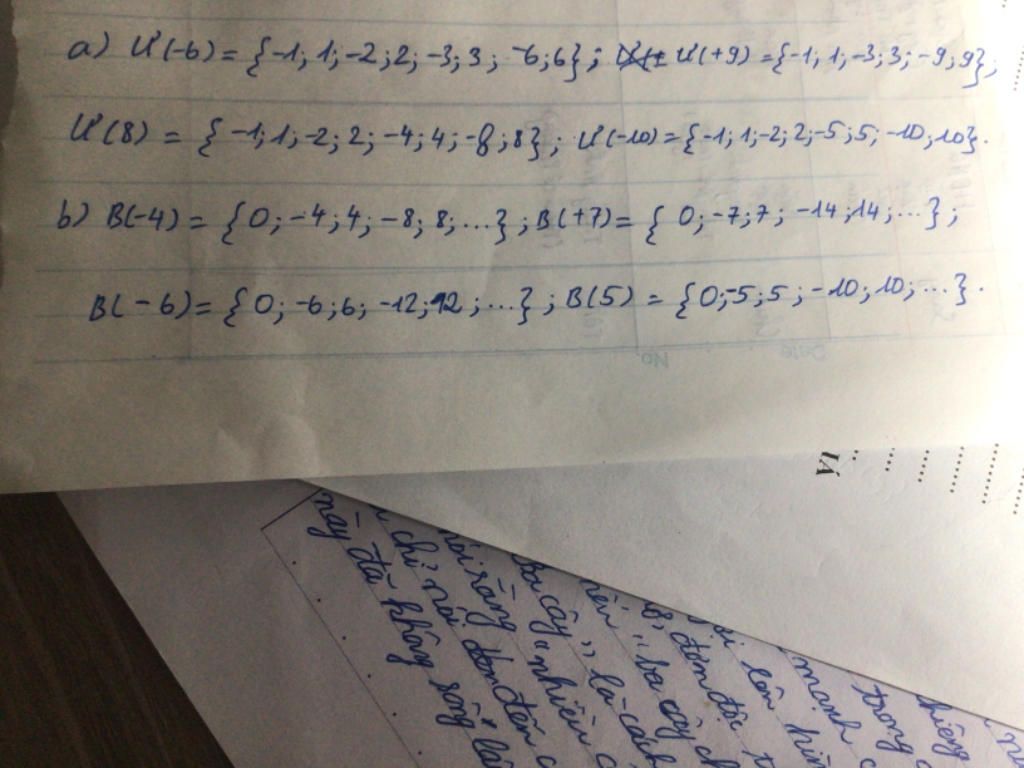 a) Ư(-6) = {-1; 1; -2; 2; -3; 3; -6; 6}; Ư(+9) = {-1; 1; -3; 3; -9; 9};
Ư(8) = {-1; 1; -2; 2; -4; 4; -8; 8}; Ư(-10) = {-1; 1; -2; 2; -5; 5; -10; 10}.
b) B(-4) = {0; -4; 4; -8; 8; ...}; B(+7) = {0; -7; 7; -14; 14; ...};
B(-6) = {0; -6; 6; -12; 12; ...}; B(5) = {0; -5; 5; -10; 10; ...}.
No.
Date
này đã không sống
chỉ nói đơn đến
nói rằng "nhiều
Ba cây" là cách
nên "ba cây
đơn độc
lên hìn
mạnh
trong